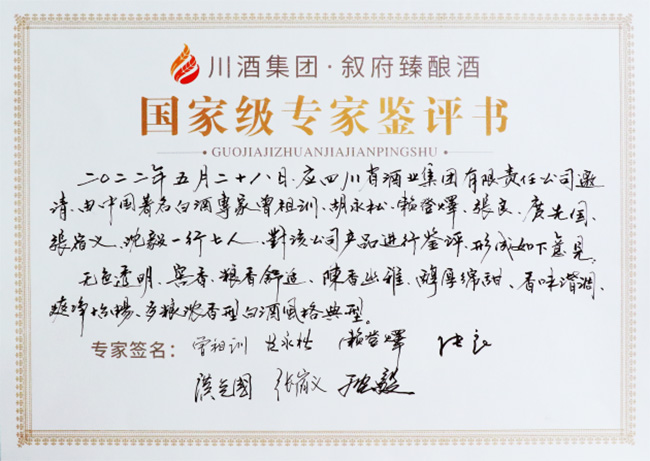 川酒集团·叙府臻酿酒
国家级专家鉴评书
GUOJIAJIZHUANJIAJIANPINGSHU
二〇二二年五月二十八日,应四川省酒业集团有限责任公司邀
请,由中国著名白酒专家曾祖训、胡永松、赖登燡、张良、先国、
张宿义、沈毅一行七人,對该公司产品进行鉴评,形成如下意见:
无色透明、窖香、粮香舒适、陳香幽雅、醇厚绵甜、香味谐调、
爽净怡畅、多粮浓香型白酒风格典型。
专家签名:曾祖训 永松 赖登燡 张良
国 张宿义 沈毅